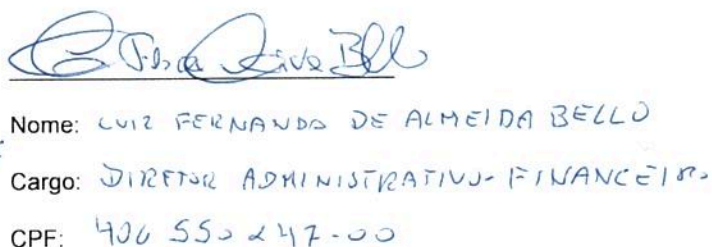 Nome: LUIZ FERNANDO DE ALMEIDA BELLO
Cargo: DIRETOR ADMINISTRATIVO-FINANCEIRO
CPF: 406 550 247-00